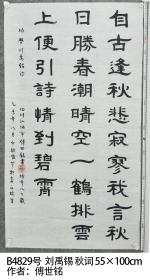 自古逢秋悲寂寥我言秋
日勝春潮晴空一鶴排雲
上便引詩情到碧霄
B4829号 刘禹锡 秋词 55×100cm
作者：傅世铭